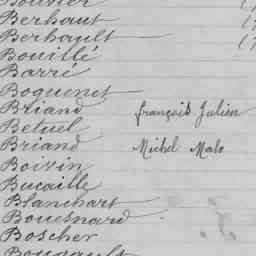 Bouvier
Berhaut
Berhault
Bouillé
Barré
Boquenet
Briand françois Julien
Betuel
Briand Michel Malo
Boivin
Bucaille
Blanchart
Bouesnard
Boscher
Bougault